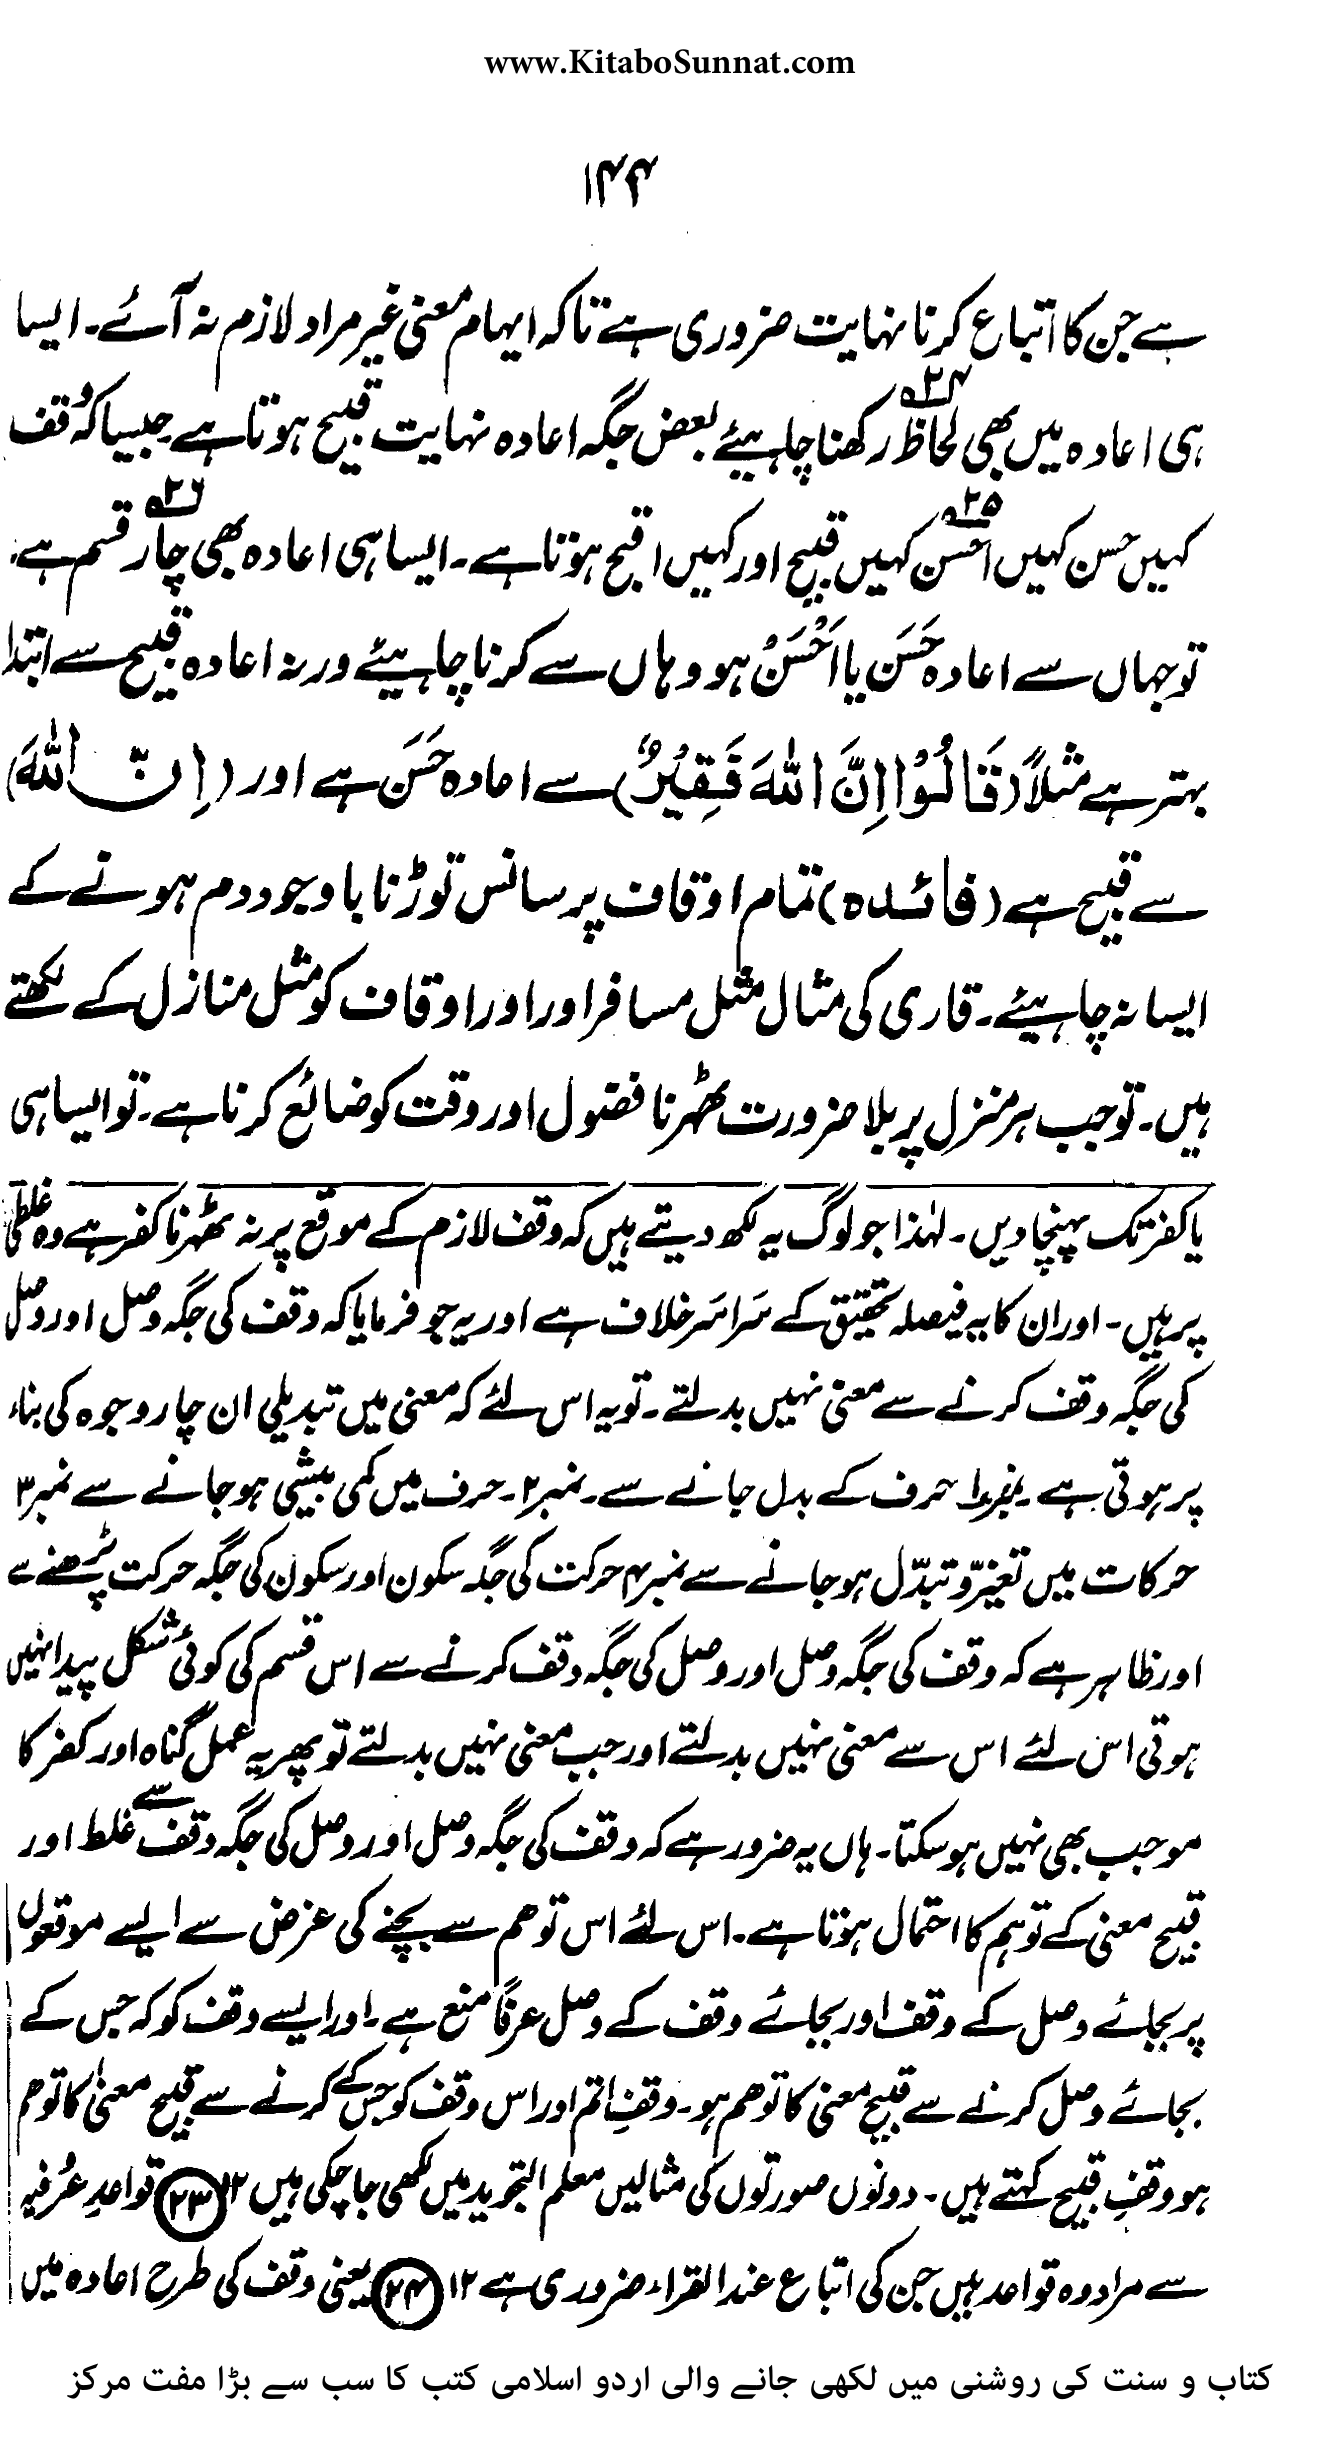 www.KitaboSunnat.com
۱۴۴
ہے جن کا اتباع کرنا نہایت ضروری ہے تاکہ ایہام معنی غیر مراد لازم نہ آئے۔ ایسا
ہی اعادہ میں بھی لحاظ ۲۴ رکھنا چاہیئے بعض جگہ اعادہ نہایت قبیح ہوتا ہے۔ جیسا کہ وقف
کہیں حسن کہیں احسن ۲۵ کہیں قبیح اور کہیں اقبح ہوتا ہے۔ ایسا ہی اعادہ بھی چار ۲۶ قسم ہے۔
تو جہاں سے اعادہ حَسَن یا اَحْسَنْ ہو وہاں سے کرنا چاہیئے ورنہ اعادہ قبیح سے ابتدا
بہتر ہے مثلاً (قَالُوْا اِنَّ اللهَ فَقِيْرٌ) سے اعادہ حَسَن ہے اور (اِنّ اللهَ)
سے قبیح ہے (فائدہ) تمام اوقاف پر سانس توڑنا باوجود دم ہونے کے
ایسا نہ چاہیئے۔ قاری کی مثال مثل مسافر اور اور اوقاف کو مثل منازل کے لکھتے
ہیں۔ تو جب ہر منزل پر بلا ضرورت ٹھہرنا فضول اور وقت کو ضائع کرنا ہے۔ تو ایسا ہی
یا کفر تک پہنچا دیں۔ لہٰذا جو لوگ یہ لکھ دیتے ہیں کہ وقف لازم کے موقع پر نہ ٹھہرنا کفر ہے وہ غلطی
پر ہیں۔ اور ان کا یہ فیصلہ تحقیق کے سَراسَر خلاف ہے اور یہ جو فرمایا کہ وقف کی جگہ وصل اور وصل
کی جگہ وقف کرنے سے معنی نہیں بدلتے۔ تو یہ اس لئے کہ معنی میں تبدیلی ان چار وجوہ کی بناء
پر ہوتی ہے۔ نمبر۱ حرف کے بدل جانے سے۔ نمبر۲۔ حرف میں کمی بیشی ہو جانے سے نمبر۳
حرکات میں تغیّر و تبدّل ہو جانے سے نمبر۴ حرکت کی جگہ سکون اور سکون کی جگہ حرکت پڑھنے سے
اور ظاہر ہے کہ وقف کی جگہ وصل اور وصل کی جگہ وقف کرنے سے اس قسم کی کوئی شکل پیدا نہیں
ہوتی اس لئے اس سے معنی نہیں بدلتے اور جب معنی نہیں بدلتے تو پھر یہ عمل گناہ اور کفر کا
موجب بھی نہیں ہو سکتا۔ ہاں یہ ضرور ہے کہ وقف کی جگہ وصل اور وصل کی جگہ وقف سے غلط اور
قبیح معنی کے توہم کا احتمال ہوتا ہے۔ اس لئے اس توھم سے بچنے کی غرض سے ایسے موقعوں
پر بجائے وصل کے وقف اور بجائے وقف کے وصل عرفاً منع ہے۔ اور ایسے وقف کو کہ جس کے
بجائے وصل کرنے سے قبیح معنی کا توھم ہو۔ وقفِ اتم اور اس وقف کو جس کے کرنے سے قبیح معنیٰ کا توھم
ہو وقفِ قبیح کہتے ہیں۔ دونوں صورتوں کی مثالیں معلم التجوید میں لکھی جا چکی ہیں ۱۲ ۲۳ قواعدِ عُرفیہ
سے مراد وہ قواعد ہیں جن کی اتباع عند القراء ضروری ہے ۱۲ ۲۴ یعنی وقف کی طرح اعادہ میں
کتاب و سنت کی روشنی میں لکھی جانے والی اردو اسلامی کتب کا سب سے بڑا مفت مرکز